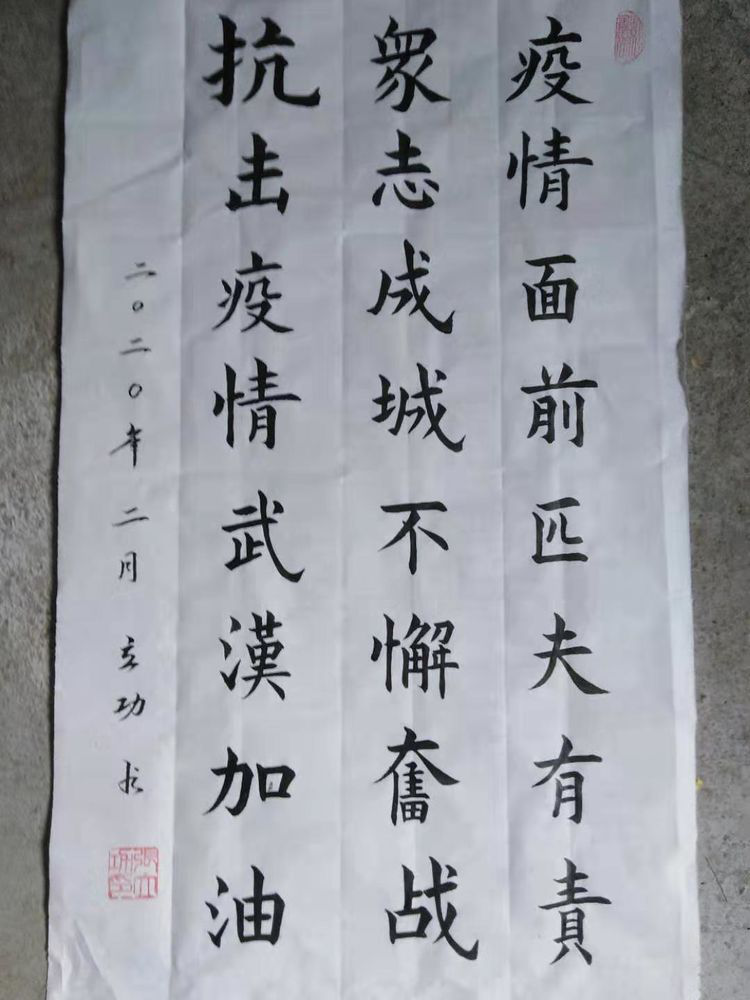 疫情面前匹夫有責
衆志成城不懈奮战
抗击疫情武漢加油
二〇二〇年二月立功书